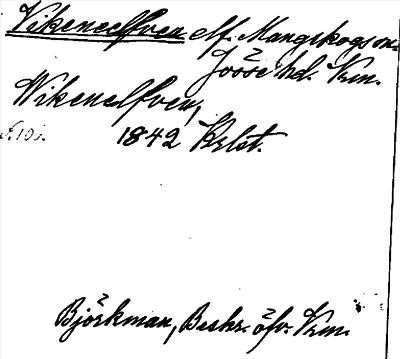 Vikeneelfven elf. Mangskogs sn.
Jösse hd. Vrm.
Wikenelfven,
1842 Krlst.
Björkman, Beskr. öfv. Vrm.